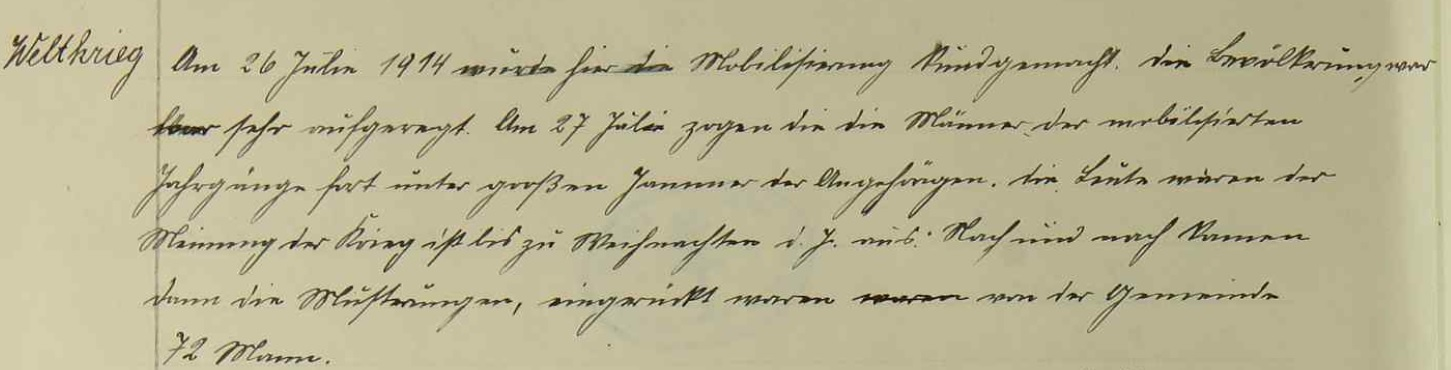 Weltkrieg Am 26 Julie 1914 wurde hier die Mobilisierung kundgemacht. die Bevölkerung war
sehr aufgeregt. Am 27 Julie zogen die die Männer der mobilisierten
Jahrgänge fort unter großen Jammer der Angehörigen. die Leute waren der
Meinung der Krieg ist bis zu Weihnachten d. J. aus. Nach und nach kamen
dann die Musterungen, eingerückt waren waren von der Gemeinde
72 Mann.